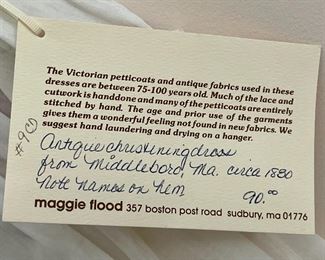 The Victorian petticoats and antique fabrics used in these
dresses are between 75-100 years old. Much of the lace and
cutwork is handdone and many of the petticoats are entirely
stitched by hand. The age and prior use of the garments
gives them a wonderful feeling not found in new fabrics. We
suggest hand laundering and drying on a hanger.
#9 ①
Antique christening dress
from Middleboro, Ma. circa 1880
Note names on hem 90.00
maggie flood 357 boston post road sudbury, ma 01776